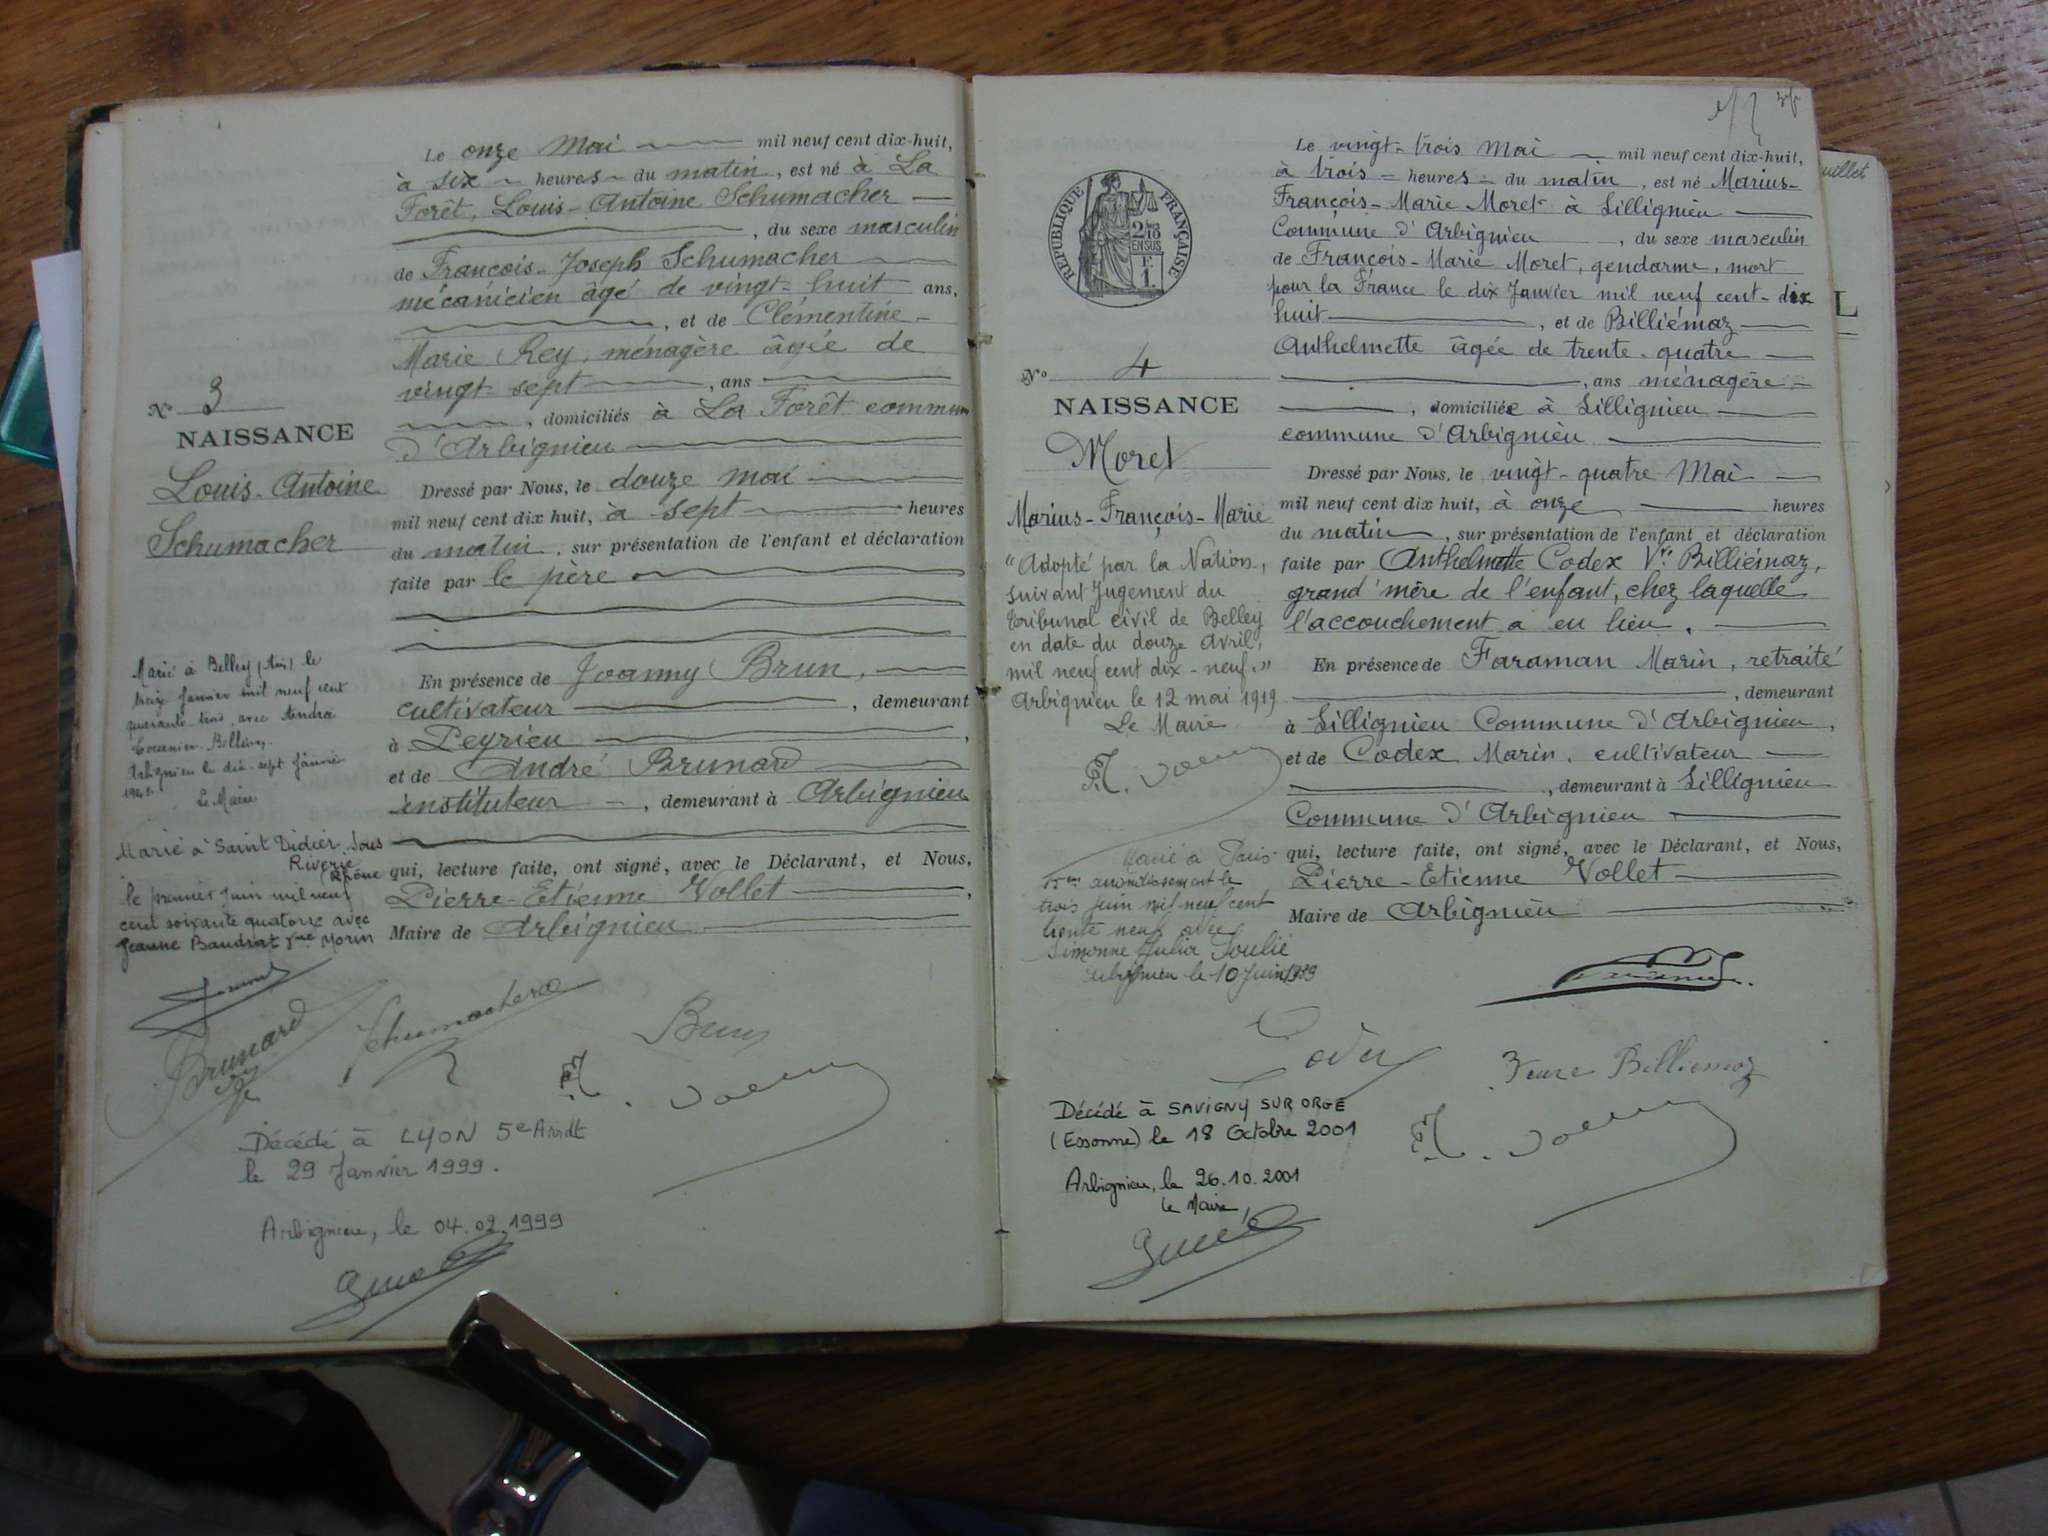 Le onze Mai mil neuf cent dix-huit,
à six heures du matin, est né à La
Forêt, Louis-Antoine Schumacher
, du sexe masculin
de François-Joseph Schumacher
mécanicien âgé de vingt-huit ans,
, et de Clémentine-
Marie Rey, ménagère âgée de
vingt sept, ans
, domiciliés à La Forêt commune
d'Arbignieu
Dressé par Nous, le douze mai
mil neuf cent dix huit, à sept heures
du matin, sur présentation de l'enfant et déclaration
faite par le père
En présence de Joanny Brun,
cultivateur, demeurant
à Peyrieu,
et de André Brunard
instituteur, demeurant à Arbignieu
qui, lecture faite, ont signé, avec le Déclarant, et Nous,
Pierre-Etienne Vollet,
Maire de Arbignieu
No 3
NAISSANCE
Louis-Antoine
Schumacher
Marié à Belley (Ain) le
treize Janvier mil neuf cent
quarante trois, avec Andréa
Arbignieu le dix-sept Janvier
Le Maire
Marié à Saint Didier sous
Riverie
Rhône
le premier Juin mil neuf
cent soixante quatorze avec
Jeanne Baudrat Vve Morin
Brunard
Schumacher
Brun
Décédé à LYON 5e Arrdt
le 29 Janvier 1999.
Arbignieu, le 04.02.1999
RÉPUBLIQUE FRANÇAISE
2/10
EN SUS
F.
1.
No 4
NAISSANCE
Moret
Marius-François-Marie
"Adopté par la Nation,
suivant Jugement du
tribunal civil de Belley
en date du douze avril,
mil neuf cent dix-neuf."
Arbignieu le 12 mai 1919
Le Maire
Marié à Paris
15me arrondissement le
trois Juin mil neuf cent
trente neuf avec
Simonne Julia Soulié
Arbignieu le 10 Juin 1939
Le vingt-trois Mai mil neuf cent dix-huit,
à trois heures du matin, est né Marius-
François-Marie Moret à Sillignieu
Commune d'Arbignieu, du sexe masculin
de François-Marie Moret, gendarme, mort
pour la France le dix Janvier mil neuf cent-dix
huit, et de Billiémaz
Anthelmette âgée de trente-quatre
, ans ménagère
, domiciliée à Sillignieu
commune d'Arbignieu
Dressé par Nous, le vingt-quatre Mai
mil neuf cent dix huit, à onze heures
du matin, sur présentation de l'enfant et déclaration
faite par Anthelmette Codex Vve Billiémaz,
grand'mère de l'enfant, chez laquelle
l'accouchement a eu lieu.
En présence de Faraman Marin, retraité
, demeurant
à Sillignieu Commune d'Arbignieu,
et de Codex Marin, cultivateur
, demeurant à Sillignieu
Commune d'Arbignieu
qui, lecture faite, ont signé, avec le Déclarant, et Nous,
Pierre-Etienne Vollet
Maire de Arbignieu
Codex
Veuve Billiemaz
Décédé à SAVIGNY SUR ORGE
(Essonne) le 18 Octobre 2001
Arbignieu, le 26.10.2001
Le Maire,
uillet
L